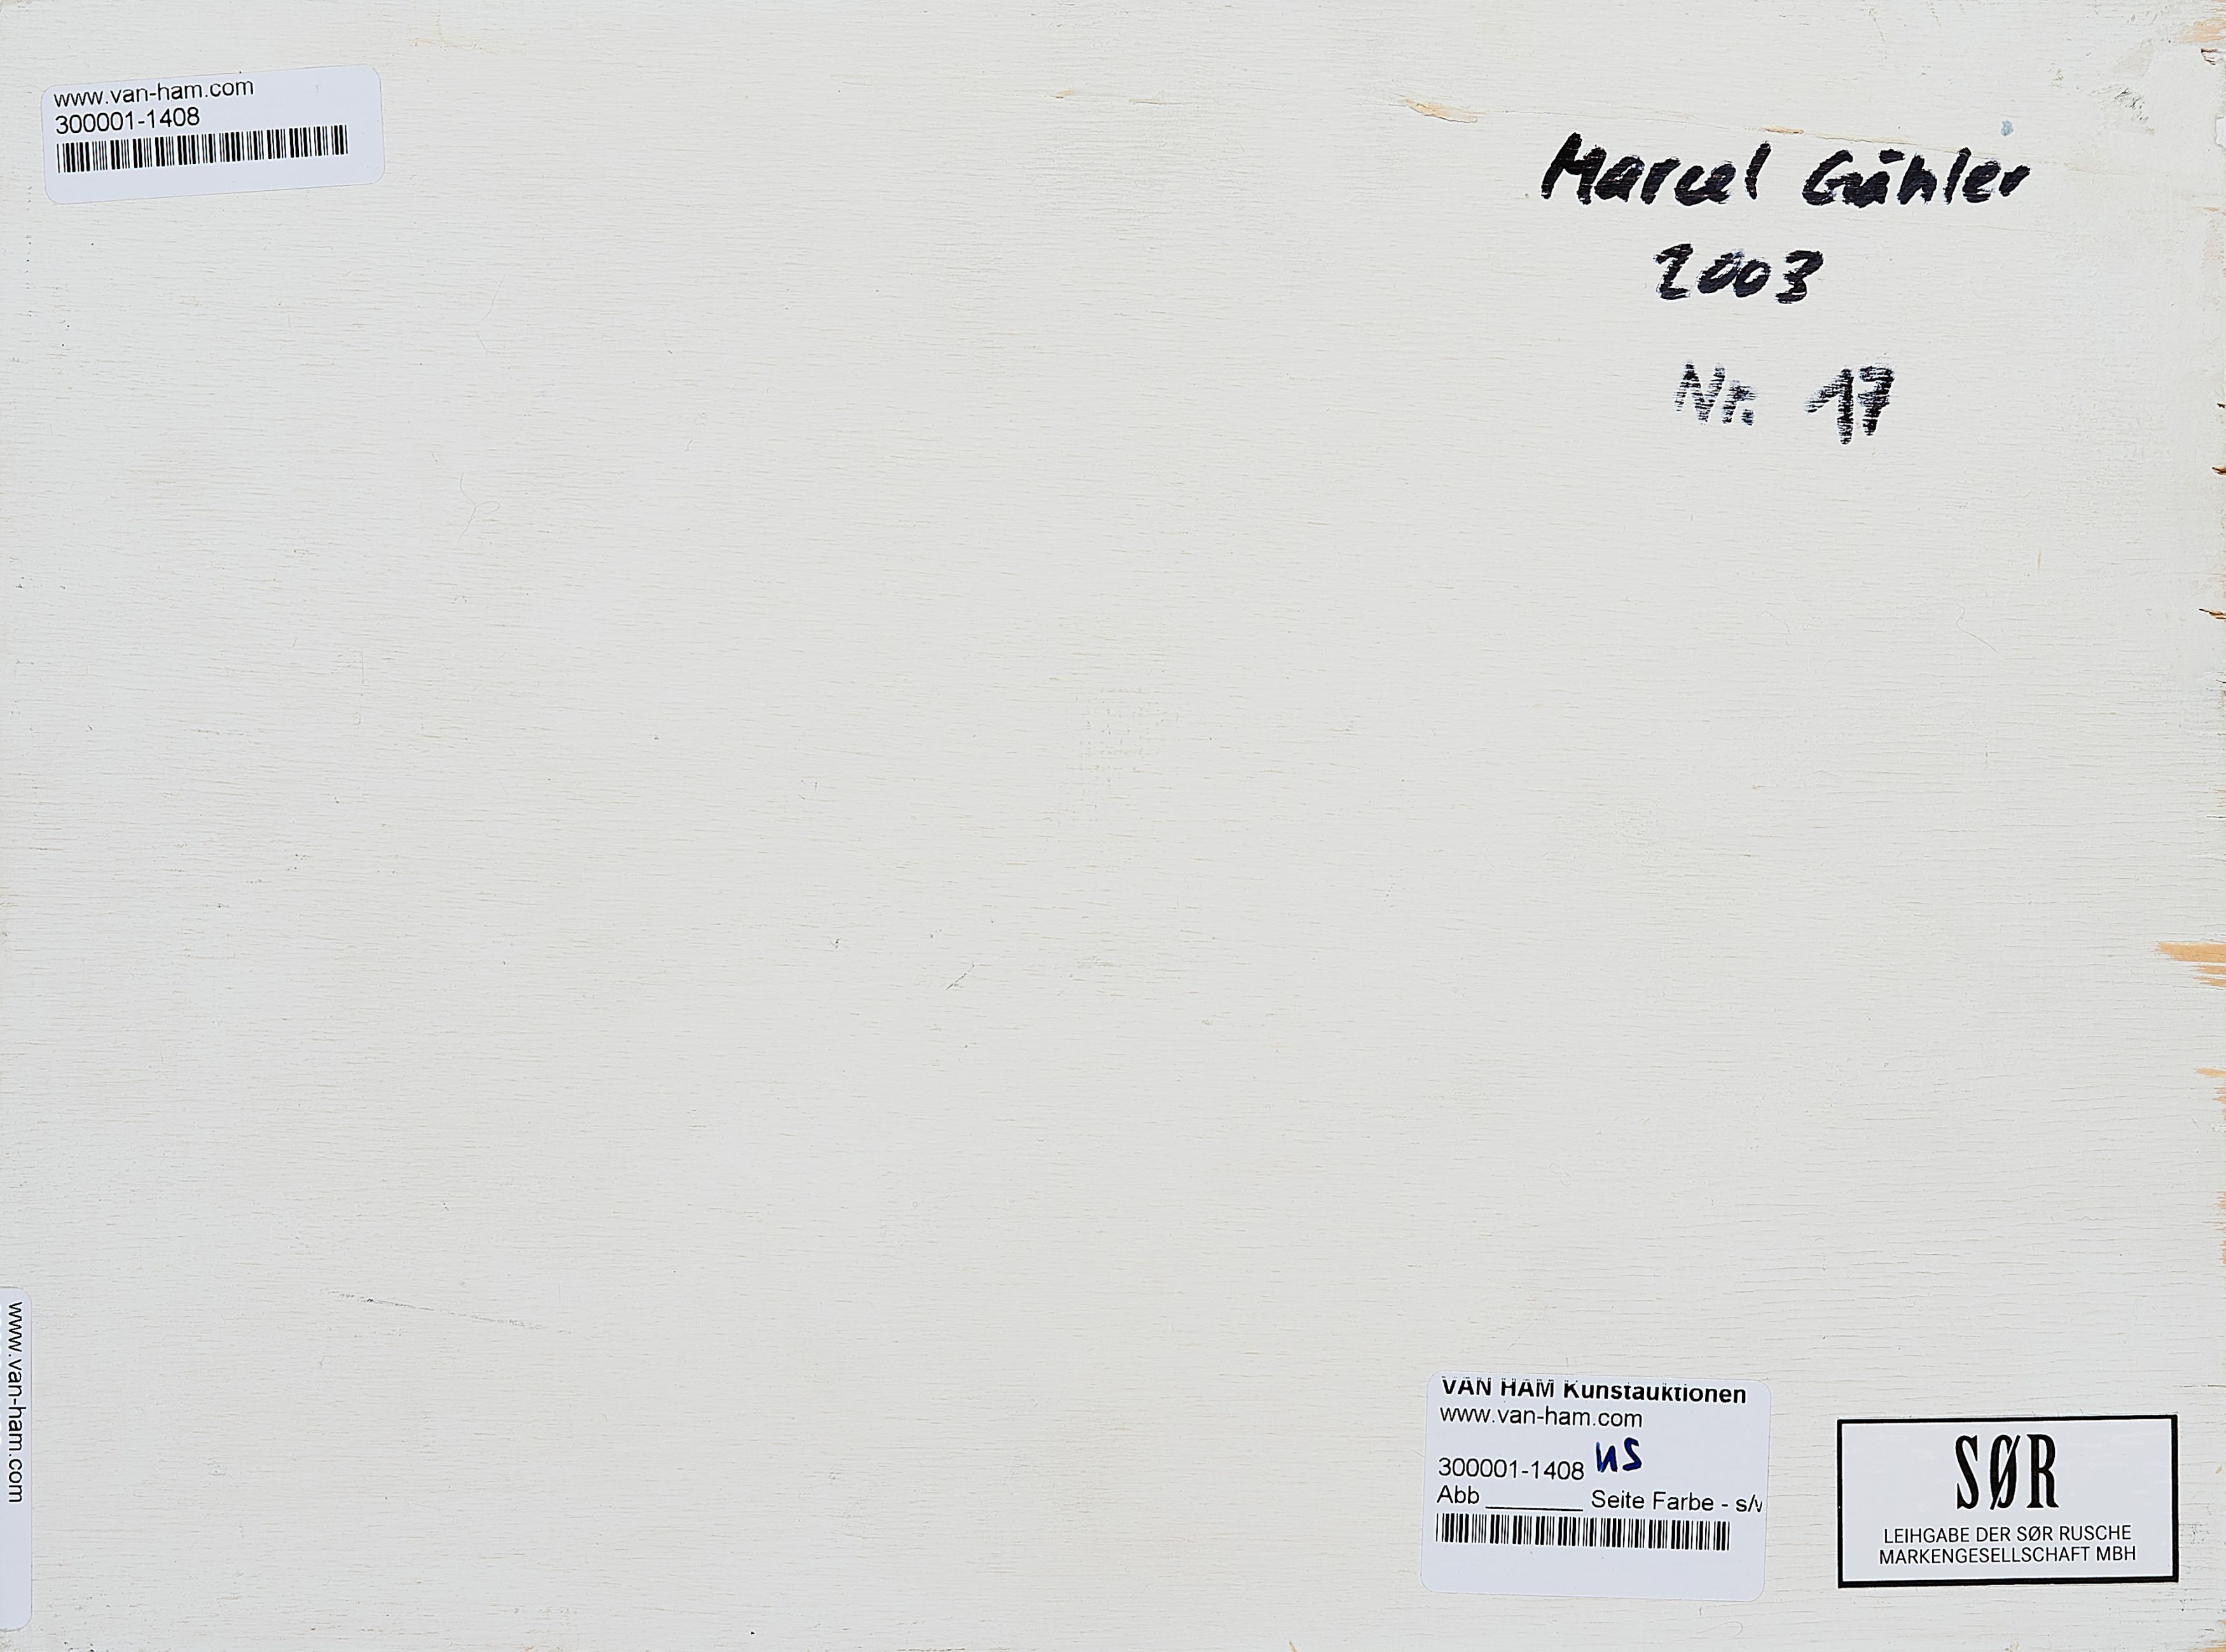 www.van-ham.com
300001-1408
Marcel Gähler
2003
Nr. 17
www.van-ham.com
VAN HAM Kunstauktionen
www.van-ham.com
300001-1408 NS
Abb ________ Seite Farbe - s/
SØR
LEIHGABE DER SØR RUSCHE
MARKENGESELLSCHAFT MBH